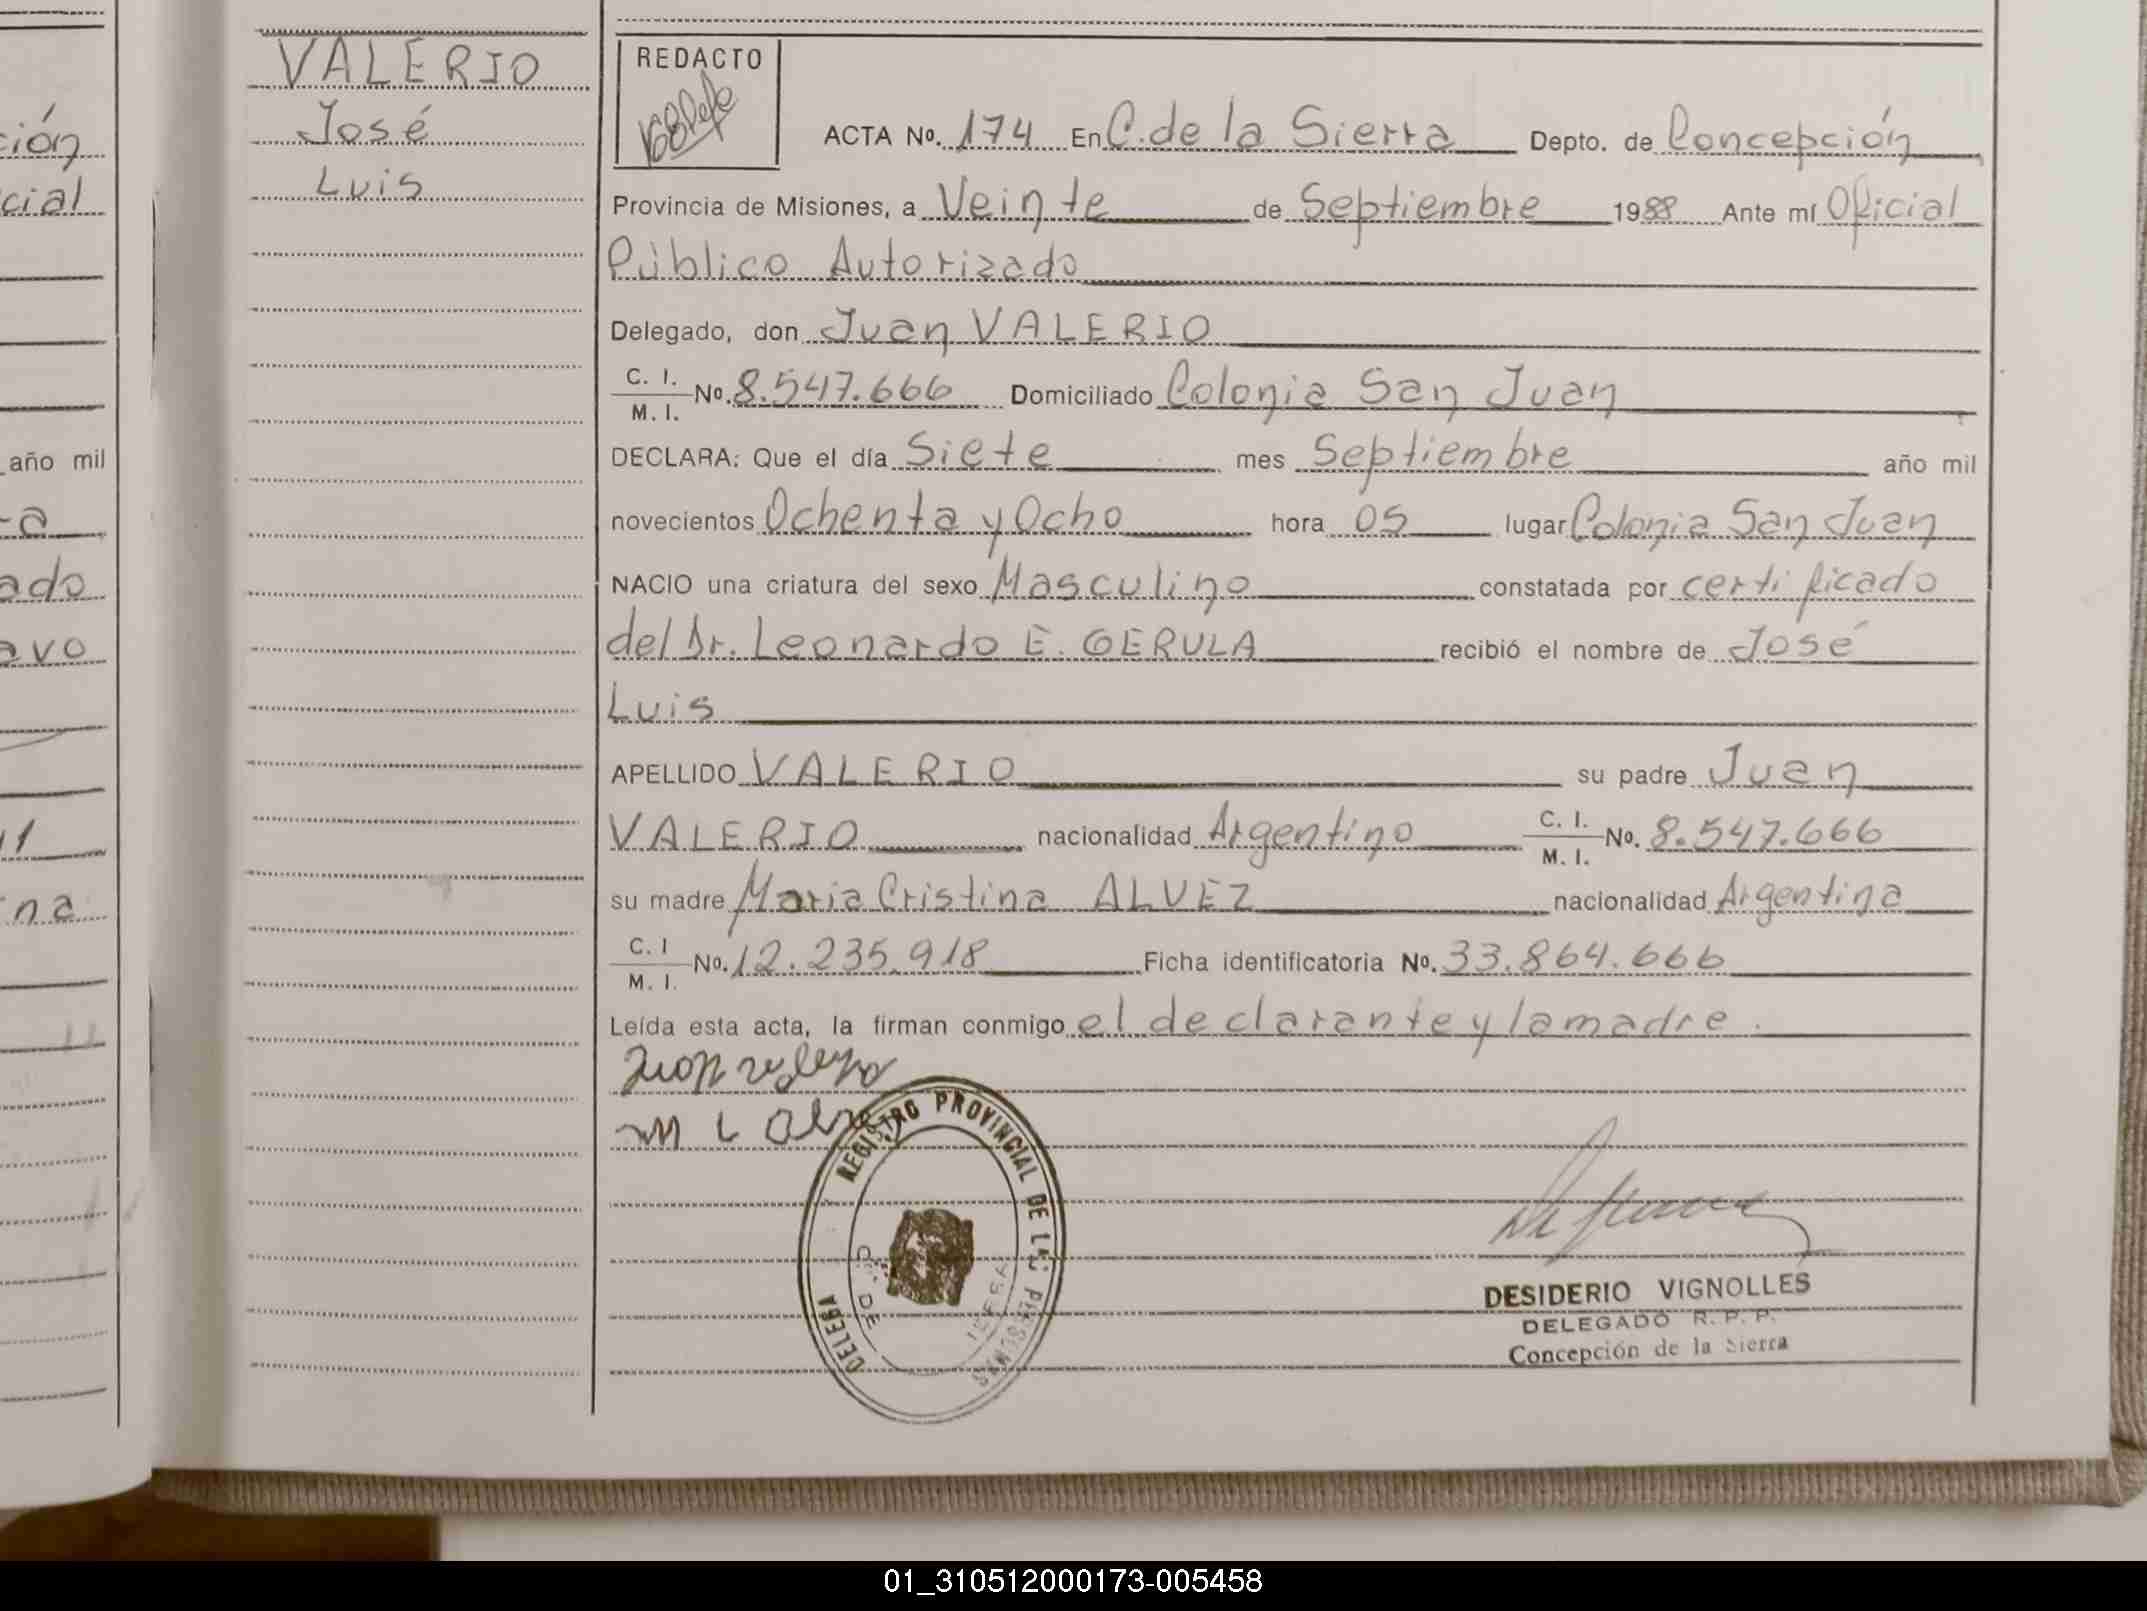 ción
cial
año mil
ado
avo
na
VALERIO
José
Luis
REDACTO
ACTA No. 174 En C. de la Sierra Depto. de Concepción
Provincia de Misiones, a Veinte de Septiembre 1988 Ante mí Oficial
Público Autorizado
Delegado, don Juan VALERIO
C. I. / M. I. No. 8.547.666 Domiciliado Colonia San Juan
DECLARA: Que el día Siete mes Septiembre año mil
novecientos Ochenta y Ocho hora 05 lugar Colonia San Juan
NACIO una criatura del sexo Masculino constatada por certificado
del Dr. Leonardo E. GERULA recibió el nombre de José
Luis
APELLIDO VALERIO su padre Juan
VALERIO nacionalidad Argentino C. I. / M. I. No. 8.547.666
su madre Maria Cristina ALVEZ nacionalidad Argentina
C. I / M. I. No. 12.235.918 Ficha identificatoria No. 33.864.666
Leída esta acta, la firman conmigo el declarante y la madre.
REGISTRO PROVINCIAL DE LAS PERSONAS
DESIDERIO VIGNOLLES
DELEGADO R. P. P.
Concepción de la Sierra
01_310512000173-005458